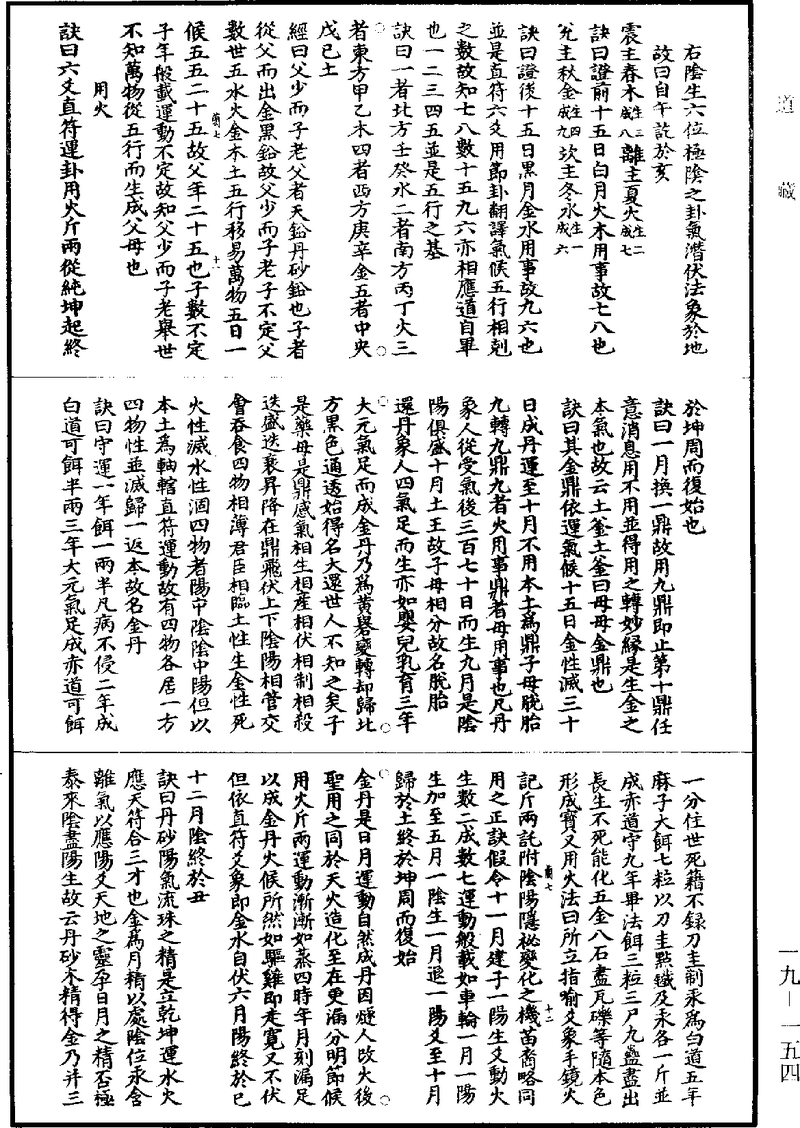 道藏
右陰生六位極陰之卦氣潛伏法象於地
故曰自午訖於亥
震主春木生三成八離主夏火生二成七
兊主秋金生四成九坎主冬水生一成六
訣曰證前十五日白月火木用事故七八也
訣曰證後十五日黑月金水用事故九六也
並是直符六爻用節卦翻譯氣候五行相剋
之數故知七八數十五九六亦相應道自畢
也一二三四五並是五行之基
訣曰一者北方壬癸水二者南方丙丁火三
者東方甲乙木四者西方庚辛金五者中央
戊己土
經曰父少而子老父者天鉛丹砂鉛也子者
從父而出金黑鉛故父少而子老子不定父
數世五水火金木土五行移易萬物五日一
蘭七
十一
候五五二十五故父年二十五也子數不定
子年般載運動不定故知父少而子老舉世
不知萬物從五行而生成父母也
用火
訣曰六爻直符運卦用火斤兩從純坤起終
於坤周而復始也
訣曰一月換一鼎故用九鼎即止第十鼎任
意消息用不用並得用之轉妙緣是生金之
本氣也故云土釜土釜曰母母金鼎也
訣曰其金鼎依運氣候十五日金性滅三十
日成丹運至十月不用本土為鼎子母脫胎
九轉九鼎九者火用事鼎者母用事也凡丹
象人從受氣後三百七十日而生九月是陰
陽俱盛十月土王故子母相分故名脫胎
還丹象人四氣足而生亦如嬰兒乳育三年
大元氣足而成金丹乃為黃轝變轉却歸北
方黑色通透始得名大還世人不知之矣子
是藥母是鼎感氣相生相產相伏相制相殺
迭盛迭衰昇降在鼎飛伏上下陰陽相管交
會吞食四物相薄君臣相臨土性生金性死
火性滅水性涸四物者陽中陰陰中陽但以
本土為軸轄直符運動故有四物各居一方
四物性並滅歸一返本故名金丹
訣曰守運一年餌一兩半凡病不侵二年成
白道可餌半兩三年大元氣足成赤道可餌
一分住世死籍不録刀圭制汞為白道五年
麻子大餌七粒以刀圭點鐵及汞各一斤並
成赤道守九年畢法餌三粒三尸九蠱盡出
長生不死能化五金八石盡瓦礫等隨本色
形成寶又用火法曰所立指喻爻象手鏡火
蘭七
十二
記斤兩託附陰陽隱祕變化之機苗裔略同
用之正訣假令十一月建子一陽生爻動火
生數二成數七運動般載如車輪一月一陽
生加至五月一陰生一月退一陽爻至十月
歸於土終於坤周而復始
金丹是日月運動自然成丹因燧人改火後
聖用之同於天火造化至在更漏分明節候
用火斤兩運動漸漸如蒸四時年月刻漏足
以成金丹火候所然如驅雞即走寬又不伏
但依直符爻象即金水自伏六月陽終於巳
十二月陰終於丑
訣曰丹砂陽氣流珠之精是立乾坤運水火
應天符合三才也金為月精以處陰位汞含
離氣以應陽爻天地之靈孕日月之精否極
泰來陰盡陽生故云丹砂木精得金乃并三
一九—一五四